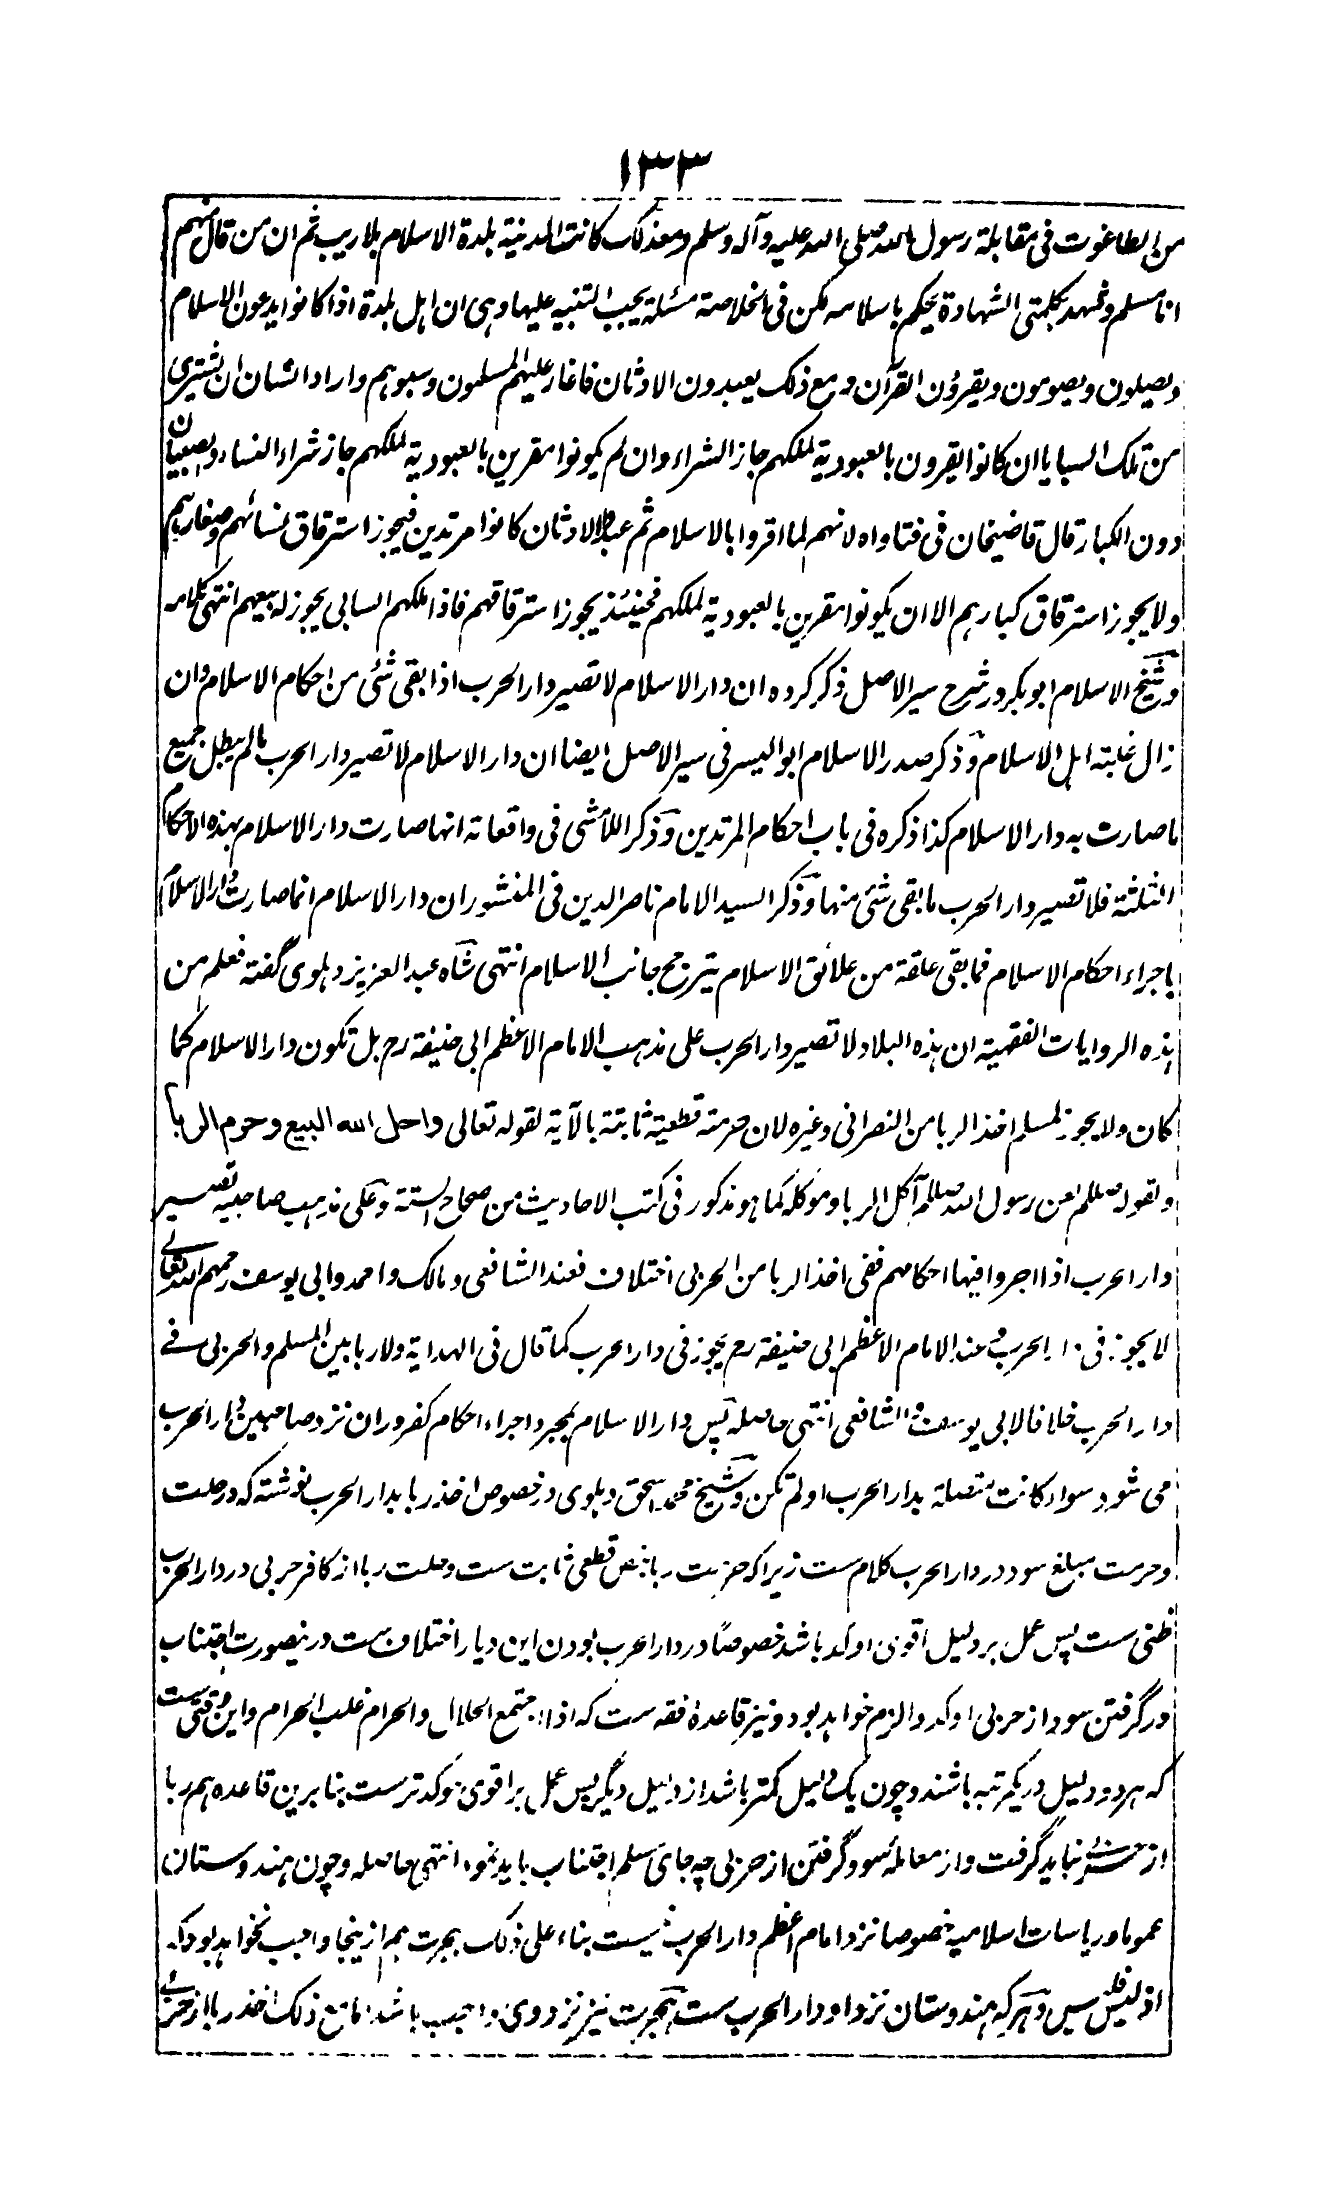 ۱۳۳
من الطاغوت فی مقابلة رسول الله صلی الله علیه وآله وسلم ومعذلک کانت المدینة بلدة الاسلام بلاریب ثم ان من قال منهم
انا مسلم وتشهد بکلمتی الشهادة یحکم باسلامه لکن فی الخلاصة مسئلة یجب التنبیه علیها وهی ان اهل بلدة اذا کانوا یدعون الاسلام
ویصلون ویصومون ویقرؤن القرآن ومع ذلک یعبدون الاوثان فاغار علیهم المسلمون وسبوهم واراد انسان ان یشتری
من تلک السبایا ان کانوا یقرون بالعبودیة لملکهم جاز الشراء وان لم یکونوا مقرین بالعبودیة لملکهم جاز شراء النساء والصبیان
دون الکبار قال قاضیخان فی فتاواه لانهم لما اقروا بالاسلام ثم عبدوا الاوثان کانوا مرتدین فیجوز استرقاق نسائهم وصغارهم
ولا یجوز استرقاق کبارهم الا ان یکونوا مقرین بالعبودیة لملکهم فحینئذ یجوز استرقاقهم فاذا ملکهم السابی یجوز له بیعهم انتهی کلامه
وشیخ الاسلام ابوبکر در شرح سیر الاصل ذکر کرده ان دار الاسلام لا تصیر دار الحرب اذا بقی شئی من احکام الاسلام وان
زال غلبته اهل الاسلام وذکر صدر الاسلام ابو الیسر فی سیر الاصل ایضا ان دار الاسلام لا تصیر دار الحرب ما لم یبطل جمیع
ما صارت به دار الاسلام کذا ذکره فی باب احکام المرتدین وذکر اللامشی فی واقعاته انها صارت دار الاسلام بهذه الاحکام
الثلثة فلا تصیر دار الحرب ما بقی شئی منها وذکر السید الامام ناصر الدین فی المنشور ان دار الاسلام انما صارت دار الاسلام
باجراء احکام الاسلام فما بقی علقة من علائق الاسلام یترجح جانب الاسلام انتهی شاه عبد العزیز دهلوی گفته فعلم من
هذه الروایات الفقهیة ان هذه البلاد لا تصیر دار الحرب علی مذهب الامام الاعظم ابی حنیفة رح بل تکون دار الاسلام کما
کان ولا یجوز لمسلم اخذ الربا من النصرانی وغیره لان حرمته قطعیة ثابتة بالآیة لقوله تعالی واحل الله البیع وحرم الربا
ولقوله صلعم لعن رسول الله صلعم آکل الربا وموکله کما هو مذکور فی کتب الاحادیث من صحاح الستة وعلی مذهب صاحبیه تصیر
دار الحرب اذا اجروا فیها احکامهم ففی اخذ الربا من الحربی اختلاف فعند الشافعی ومالک واحمد وابی یوسف رحمهم الله تعالی
لا یجوز فی دار الحرب وعند الامام الاعظم ابی حنیفة رح یجوز فی دار الحرب کما قال فی الهدایة ولا ربا بین المسلم والحربی فے
دار الحرب خلافا لابی یوسف والشافعی انتهی حاصله پس دار الاسلام بمجرد اجراء احکام کفر دران نزد صاحبین دار الحرب
می شود سواء کانت متصلة بدار الحرب او لم تکن وشیخ محمد اسحق دهلوی در خصوص اخذ ربا بدار الحرب نوشته که در حلت
وحرمت مبلغ سود در دار الحرب کلام ست زیرا که حرمت ربا بنص قطعی ثابت ست وحلت ربا از کافر حربی در دار الحرب
ظنی ست پس عمل بر دلیل اقوی اوکد باشد خصوصًا در دار الحرب بودن این دیار اختلاف ست درینصورت اجتناب
در گرفتن سود از حربی اوکد والزم خواهد بود ونیز قاعدۀ فقه ست که اذا اجتمع الحلال والحرام غلب الحرام واین وقتی ست
که هر دو دلیل در یکمرتبه باشند وچون یک دلیل کمتر باشد از دلیل دیگر پس عمل بر اقوی موکدتر ست بنا برین قاعده هم ربا
از حربی نباید گرفت واز معاملۀ سود گرفتن از حربی چه جای مسلم اجتناب باید نمود انتهی حاصله وچون هندوستان
عموما وریاسات اسلامیه خصوصا نزد امام اعظم دار الحرب نیست بناء علی ذلک هجرت هم ازینجا واجب نخواهد بود که
اذ لیس فلیس وهر که هندوستان نزد او دار الحرب ست هجرت نیز نزد وی واجب باشد مع ذلک اخذ ربا از حربی